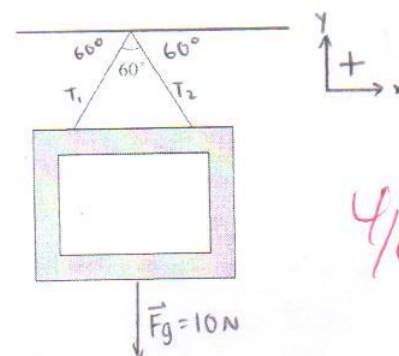 60° 60°
60°
T₁ T₂
y
+
x
F⃗g = 10N